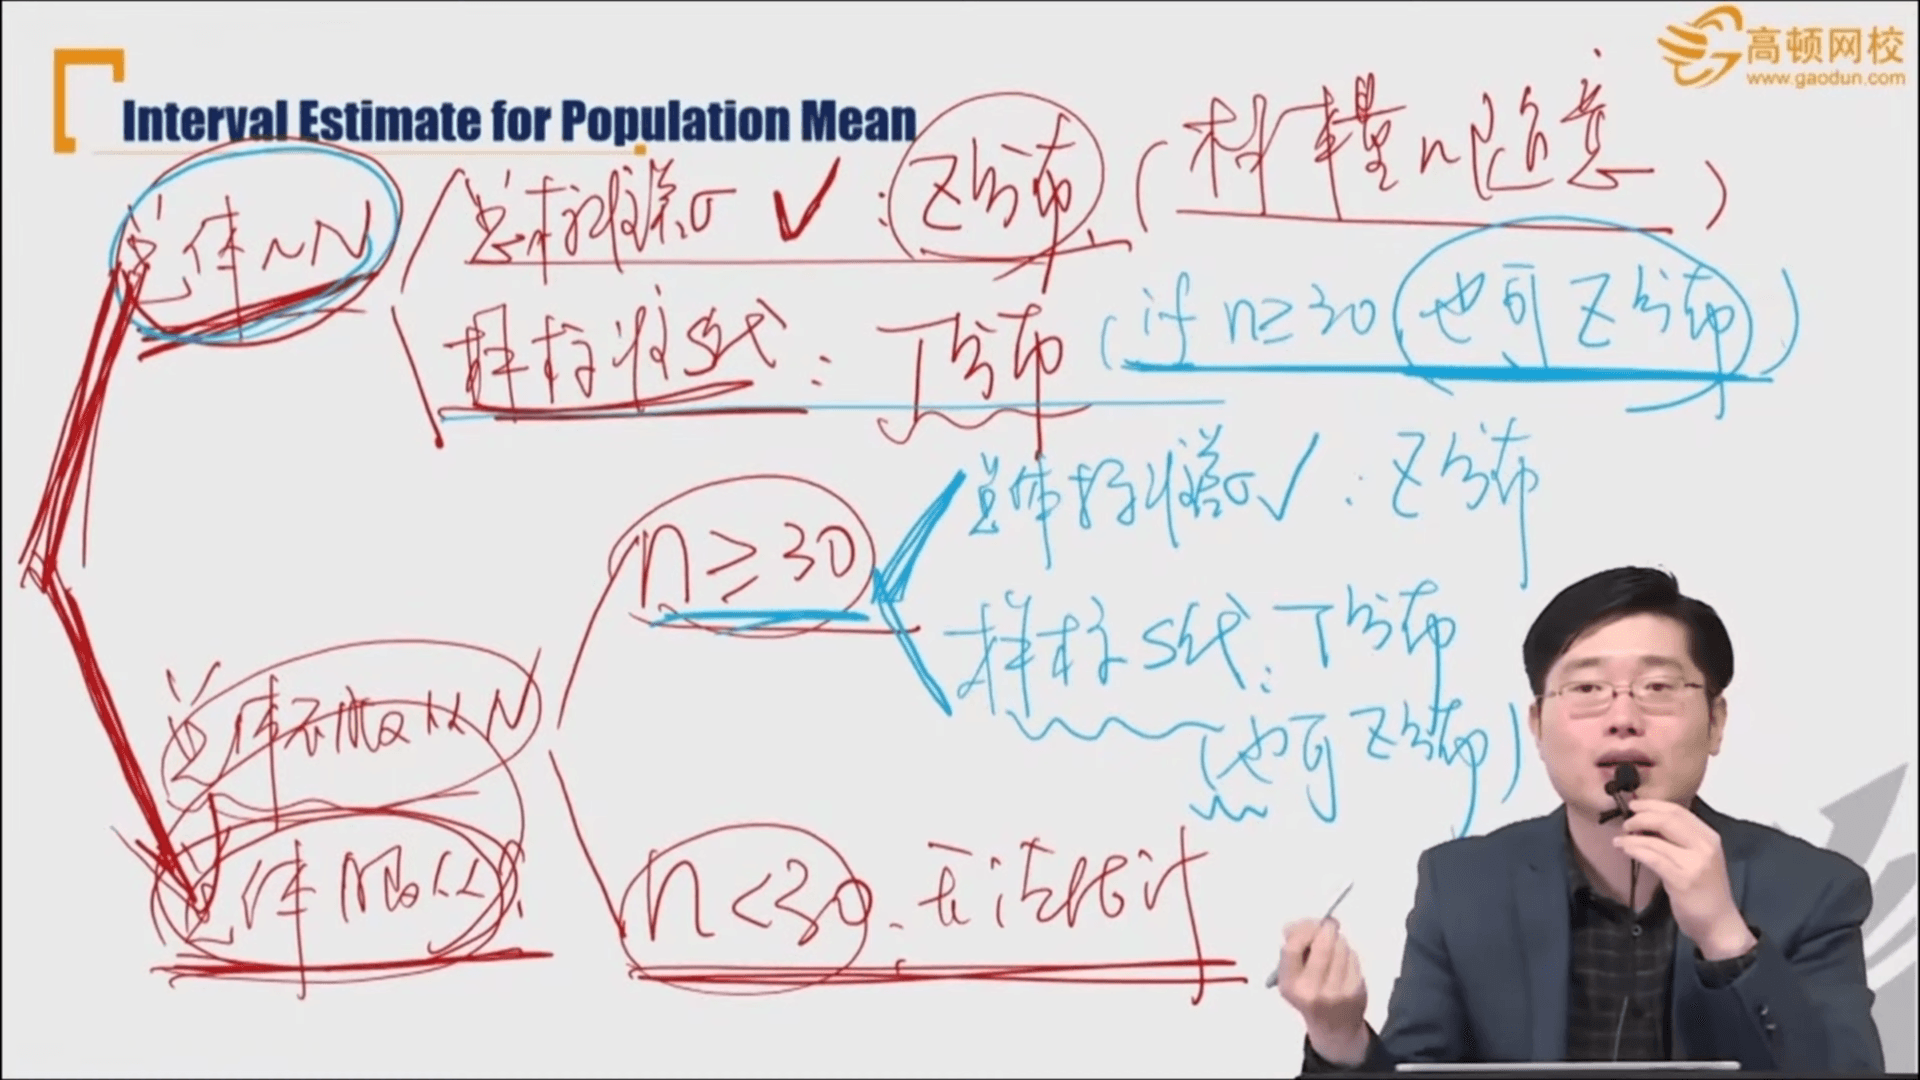 高顿网校
www.gaodun.com
Interval Estimate for Population Mean
总体~N
总标准差σ ✓ : Z分布 (样本量n随意)
样标准S代 : T分布 (if n≥30 也可Z分布)
n≥30
总体标准差σ✓ : Z分布
样标S代 : T分布
(也可Z分布)
总体不服从N
总体服从
n<30、无法估计